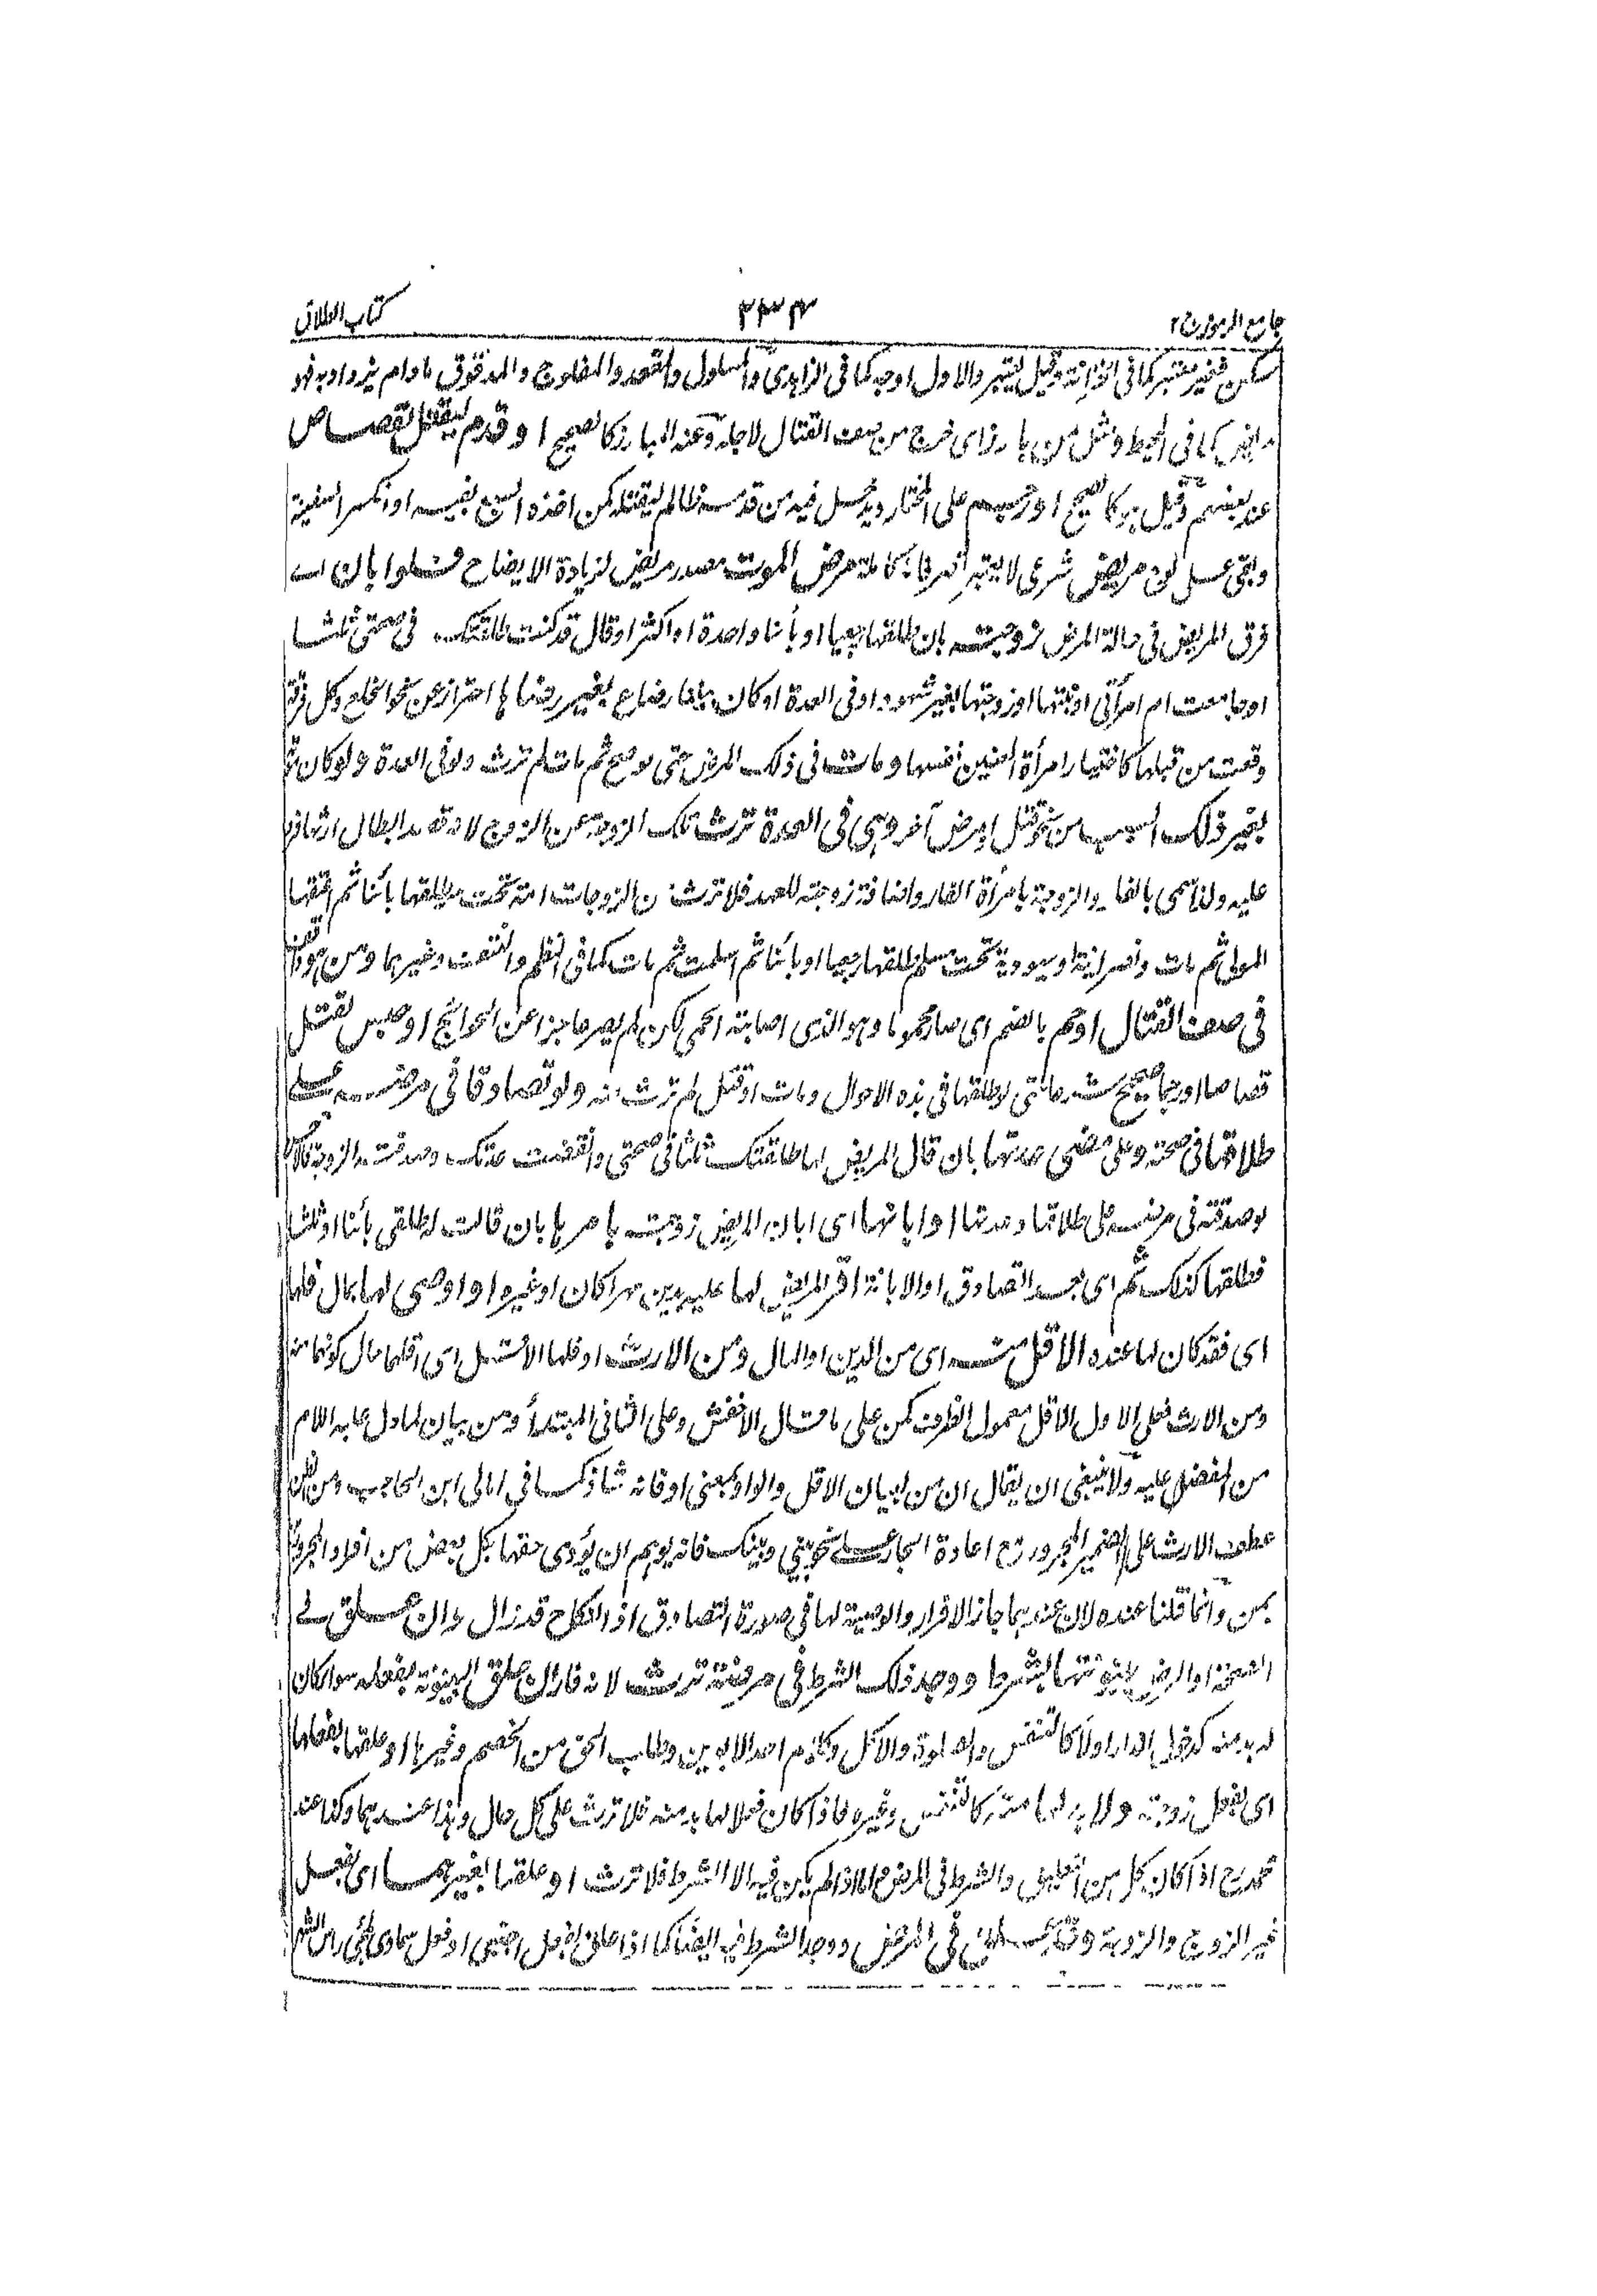 جامع الرموز ج ٢ ٣٣٤ كتاب الطلاق
سكن فغير معتبر كما في الخزانة وقيل يعتبر والاول اوجه كما في الزاهدي والمسلول والمقعد والمفلوج والمدقوق ما دام يزداد به فهو
مريض كما في المحيط ومثل من بارز اى خرج من صف القتال لاجله وعنه المبارز كالصحيح او قدم ليقتل لقصاص
عند بعضهم وقيل هو كالصحيح او رجم على المختار ويدخل فيه من قدمه ظالم ليقتله كمن اخذه السبع بفيه او انكسر السفينة
وبقى على لوح مريض شرعى لا يعتبر تصرفاته كاملة مرض الموت مصدر مريض لزيادة الايضاح فلو ابان اى
فرق المريض فى حالة المرض زوجته بان طلقها رجعيا او بائنا واحدة او اكثر او قال قد كنت طلقتك فى صحتى ثلثا
او جامعت ام امرأتى او بنتها او زوجتها بغير شهود او فى العدة او كان بيننا رضاع بغير رضاها احتراز عن نحو الخلع وكل فرقة
وقعت من قبلها كاختيار امرأة العنين نفسها ومات فى ذلك المرض حتى لو صح ثم مات لم ترث ولو فى العدة ولو كان
بغير ذلك السبب من نحو قتل او مرض آخر وهى فى العدة ترث تلك الزوجة عن الزوج لانه قصد ابطال ارثها فرد
عليه ولذا سمى بالفار والزوجة بامرأة الفار واضافة زوجته للعهد فلا ترث من الزوجات امة تحت حر طلقها بائنا ثم اعتقها
المولى ثم مات ونصرانية او يهودية تحت مسلم طلقها رجعيا او بائنا ثم اسلمت ثم مات كما فى النظم والنتف وغيرهما ومن هو
فى صف القتال او حم بالضم اى صار محموما وهو الذى اصابته الحمى لكن لم يصر عاجزا عن الحوائج او حبس لقتل
قصاصا او رجما صحيح شرعا حتى لو طلقها فى هذه الاحوال ومات او قتل لم ترث منه ولو تصادقا فى مرضه على
طلاقها فى صحته وعلى مضى عدتها بان قال المريض لها طلقتك ثلثا فى صحتى وانقضت عدتك وصدقته الزوجة
لو صدقته فى مرضه على طلاقها وعدتها او ابانها اى ابان المريض زوجته بامرها بان قالت له طلقنى بائنا او ثلثا
فطلقها كذلك ثم اى بعد التصادق او الابانة اقر المريض لها عليه بدين مهرا كان او غيره او اوصى لها بمال فلها
اى فقد كان لها عنده الاقل منه اى من الدين او المال ومن الارث او فلها الاقل اى اقلهما حال كونهما منه
ومن الارث فعلى الاول الاقل معمول الظرف لكن على ما قال الاخفش وعلى الثانى المبتدأ ومن بيان لما دل عليه اللام
من المفضل عليه ولا ينبغى ان يقال ان من لبيان الاقل والواو بمعنى او فانه شاذ كما فى امالى ابن الحاجب ومن
عطف الارث على الضمير المجرور مع اعادة الجار على نحو بينى وبينك فانه يوهم ان يؤدى حقها بكل بعض من افراد المجرور
بمن وانما قلنا عنده لان عندهما جاز الاقرار والوصية لها فى صورة التصادق اذ النكاح قد زال وان علق فى
الصحة او المرض بينونتها بشرط ووجد ذلك الشرط فى مرضه ترث لانه فار ان علق البينونة بفعله سواء كان
له بد منه كدخول الدار او لا كالتنفس والصلوة والاكل وكلام احد الابوين وطلب الحق من الخصم وغيرها او علقها بفعلها
اى بفعل زوجته ولا بد لها منه كالتنفس وغيره فاذا كان فعلا لها بد منه فلا ترث على كل حال وهذا عندهما وكذا عند
محمد رح اذا كان كل من التعليق والشرط فى المرض واما اذا لم يكن فيه الا الشرط فلا ترث او علقها بغيرهما اى بفعل
غير الزوج والزوجة وقد علق فى المرض ووجد الشرط فيه ايضا كما اذا علق بفعل اجنبى او فعل سماوى كمجئ رأس الشهر